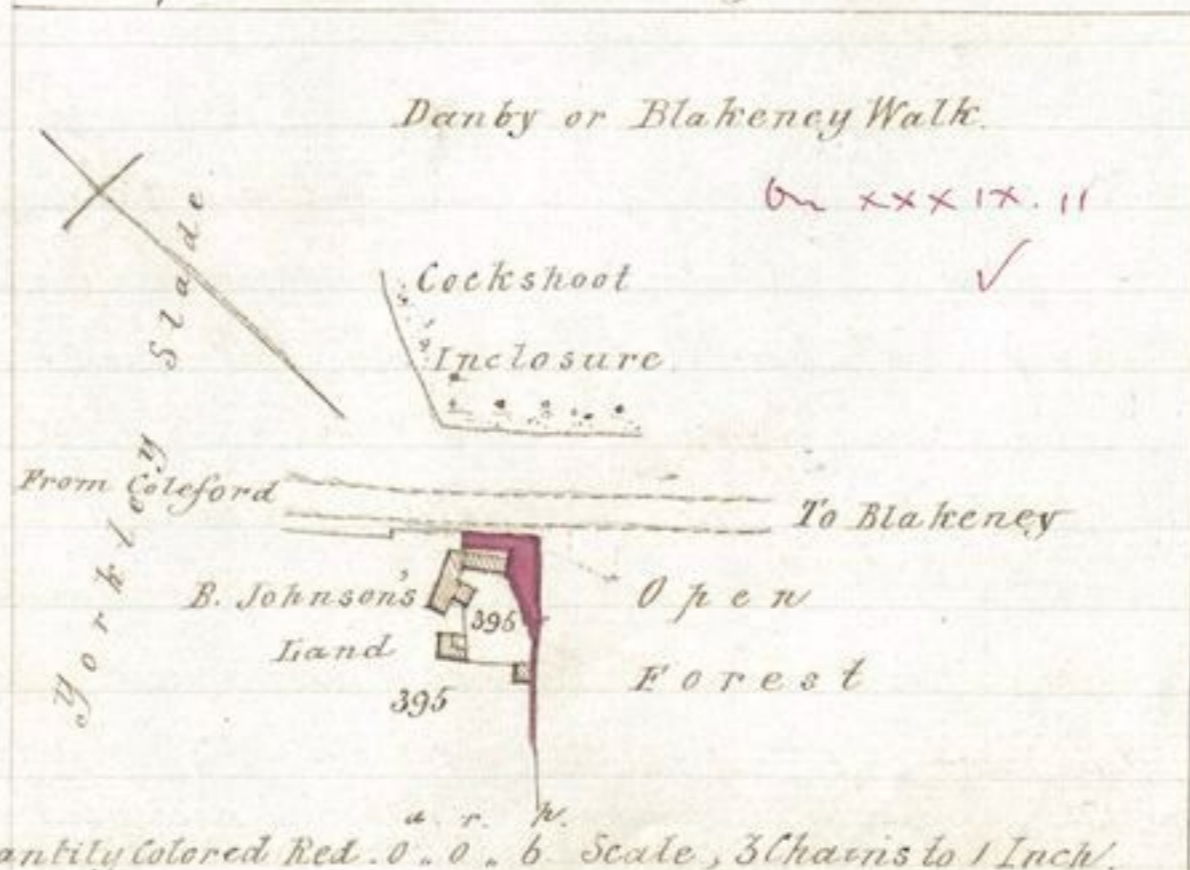 Danby or Blakeney Walk.
On XXXIX. 11
Cockshoot
Inclosure
Yorkley Slade
From Coleford
To Blakeney
B. Johnson's
Land
395
395
Open
Forest
a. r. p.
antity Colored Red. 0 .. 0 .. 6 Scale, 3 Chains to 1 Inch.